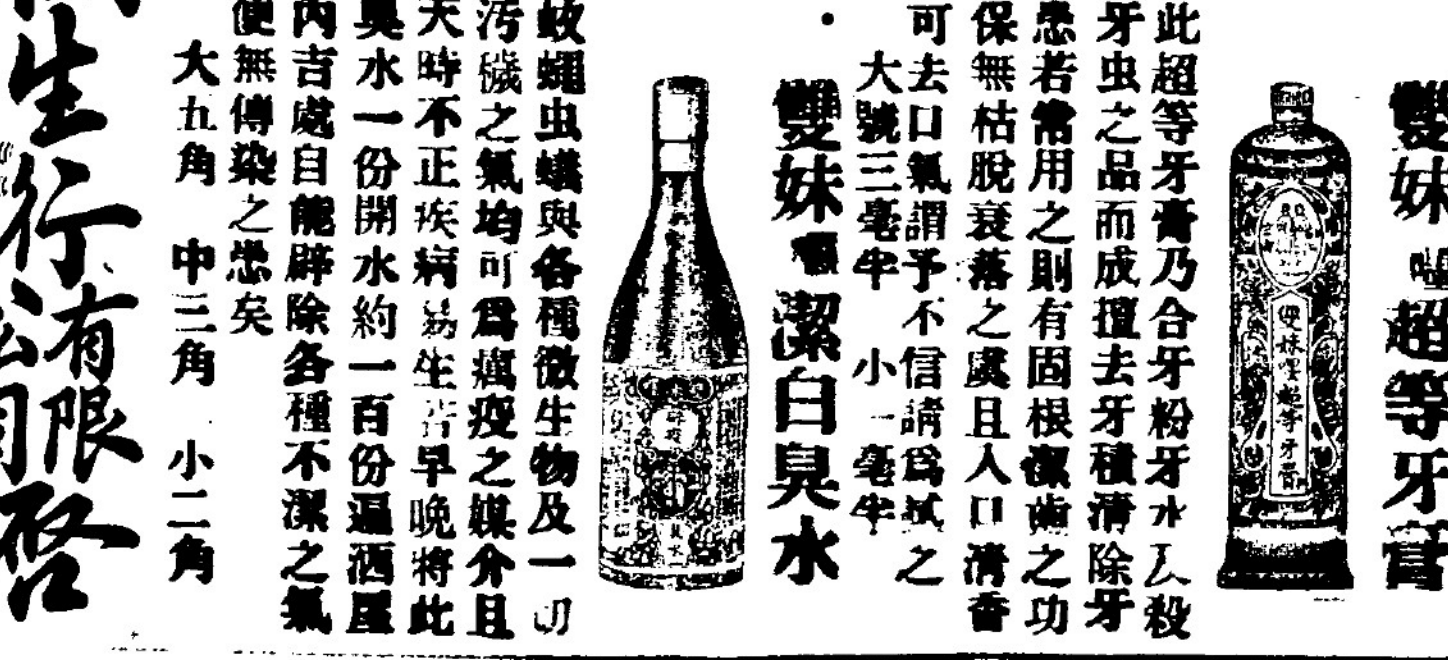 雙妹嘜超等牙膏
雙妹嘜超等牙膏
此超等牙膏乃合牙粉牙水以殺
牙虫之品而成擅去牙積清除牙
患若常用之則有固根潔齒之功
保無枯脫衰落之虞且入口清香
可去口氣謂予不信請爲試之
大號三毫半 小一毫半
雙妹嘜潔白臭水
臭水
蚊蠅虫蟻與各種微生物及一切
汚穢之氣均可爲癘疫之媒介且
天時不正疾病易生若早晚將此
臭水一份開水約一百份遍洒屋
內吉處自能辟除各種不潔之氣
便無傳染之患矣
大五角 中三角 小二角
生行有限公司啓